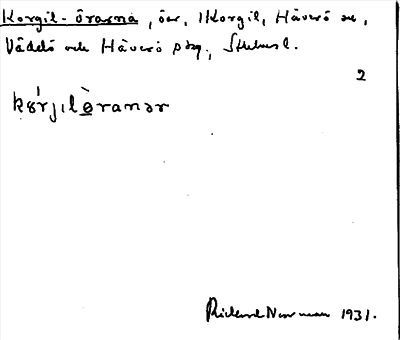 Korgil-örarna, öar, i Korgil, Häverö sn,
Väddö och Häverö skg, Sthlms l.
2
kȣ́rjılɵ̀ranər
Rickard Norrman 1931.